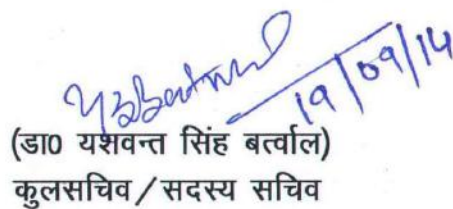 19/09/14
(डा० यशवन्त सिंह बर्त्वाल)
कुलसचिव/सदस्य सचिव